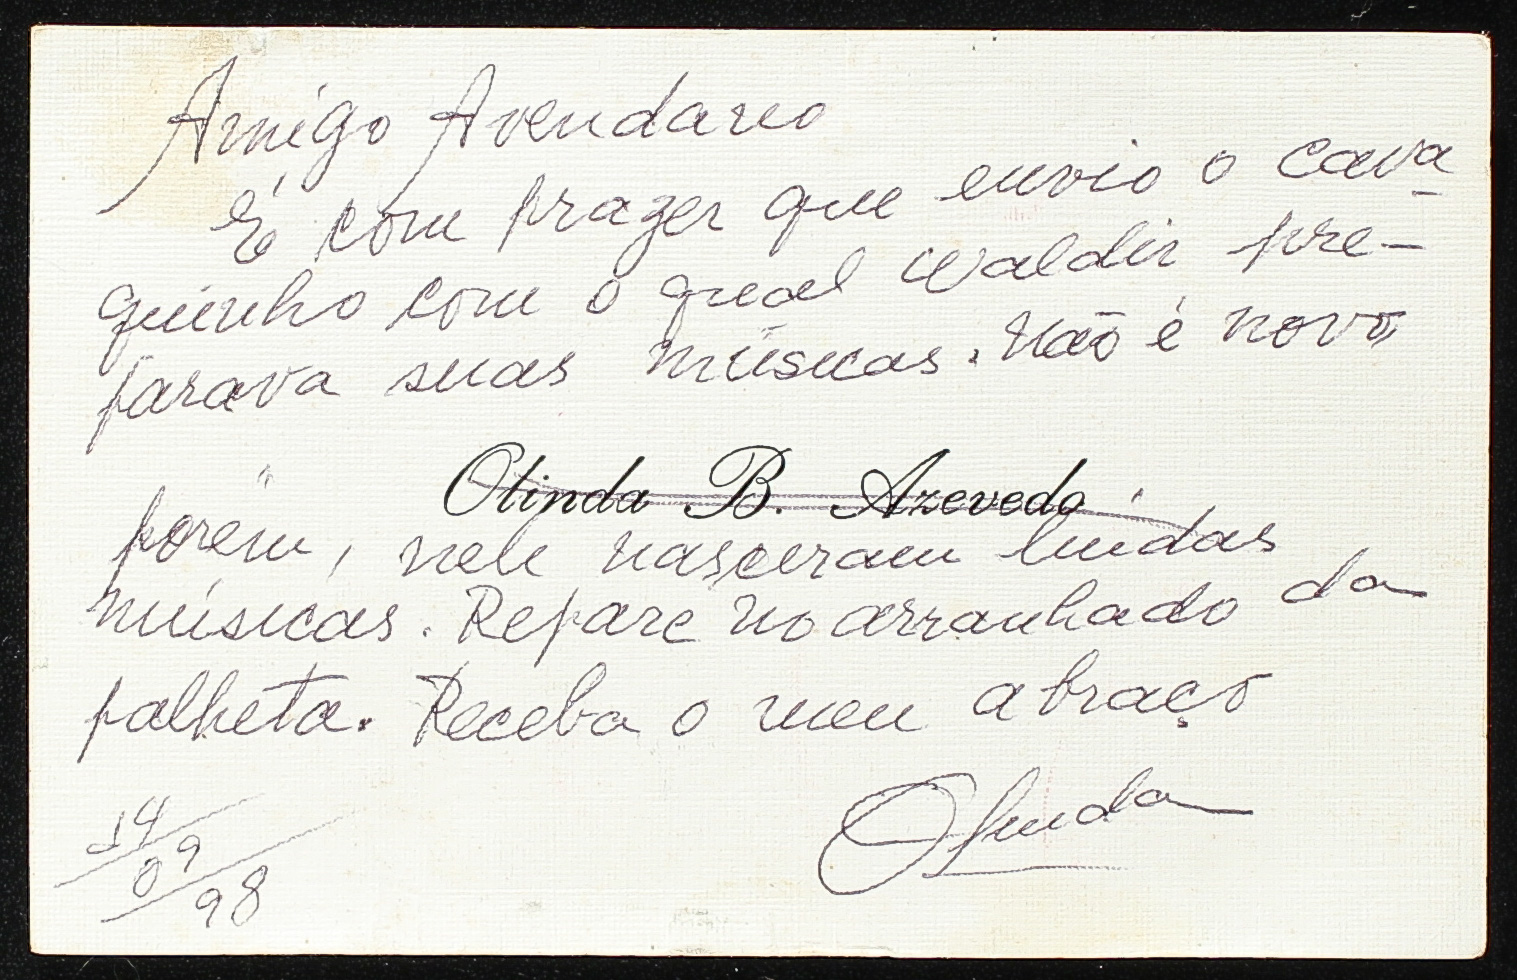 Amigo Avendano
É com prazer que envio o cava-
quinho com o qual Waldir pre-
parava suas músicas. Não é novo,
Olinda B. Azevedo
porém, nele nasceram lindas
músicas. Repare no arranhado da
palheta. Receba o meu abraço
Olinda
14/09/98